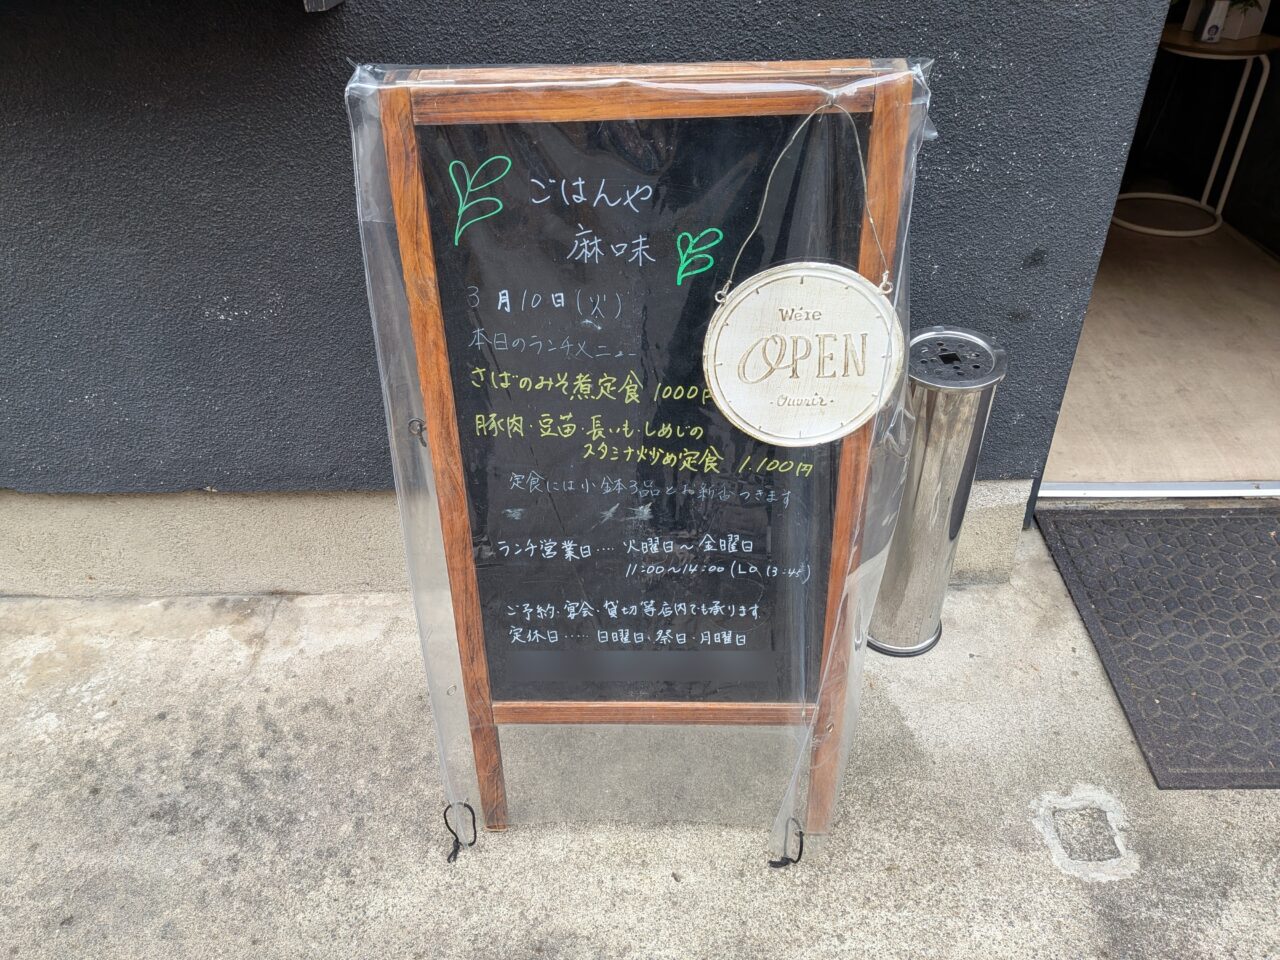 ごはんや
麻味
3月10日(火)
本日のランチメニュー
さばのみそ煮定食 1000円
豚肉・豆苗・長いも・しめじの
スタミナ炒め定食 1.100円
定食には小鉢3品とお新香つきます
ランチ営業日‥‥ 火曜日〜金曜日
11:00〜14:00(LO 13:45)
ご予約・宴会・貸切等店内でも承ります
定休日‥‥‥日曜日・祭日・月曜日
We're
OPEN
-Ouvrir-